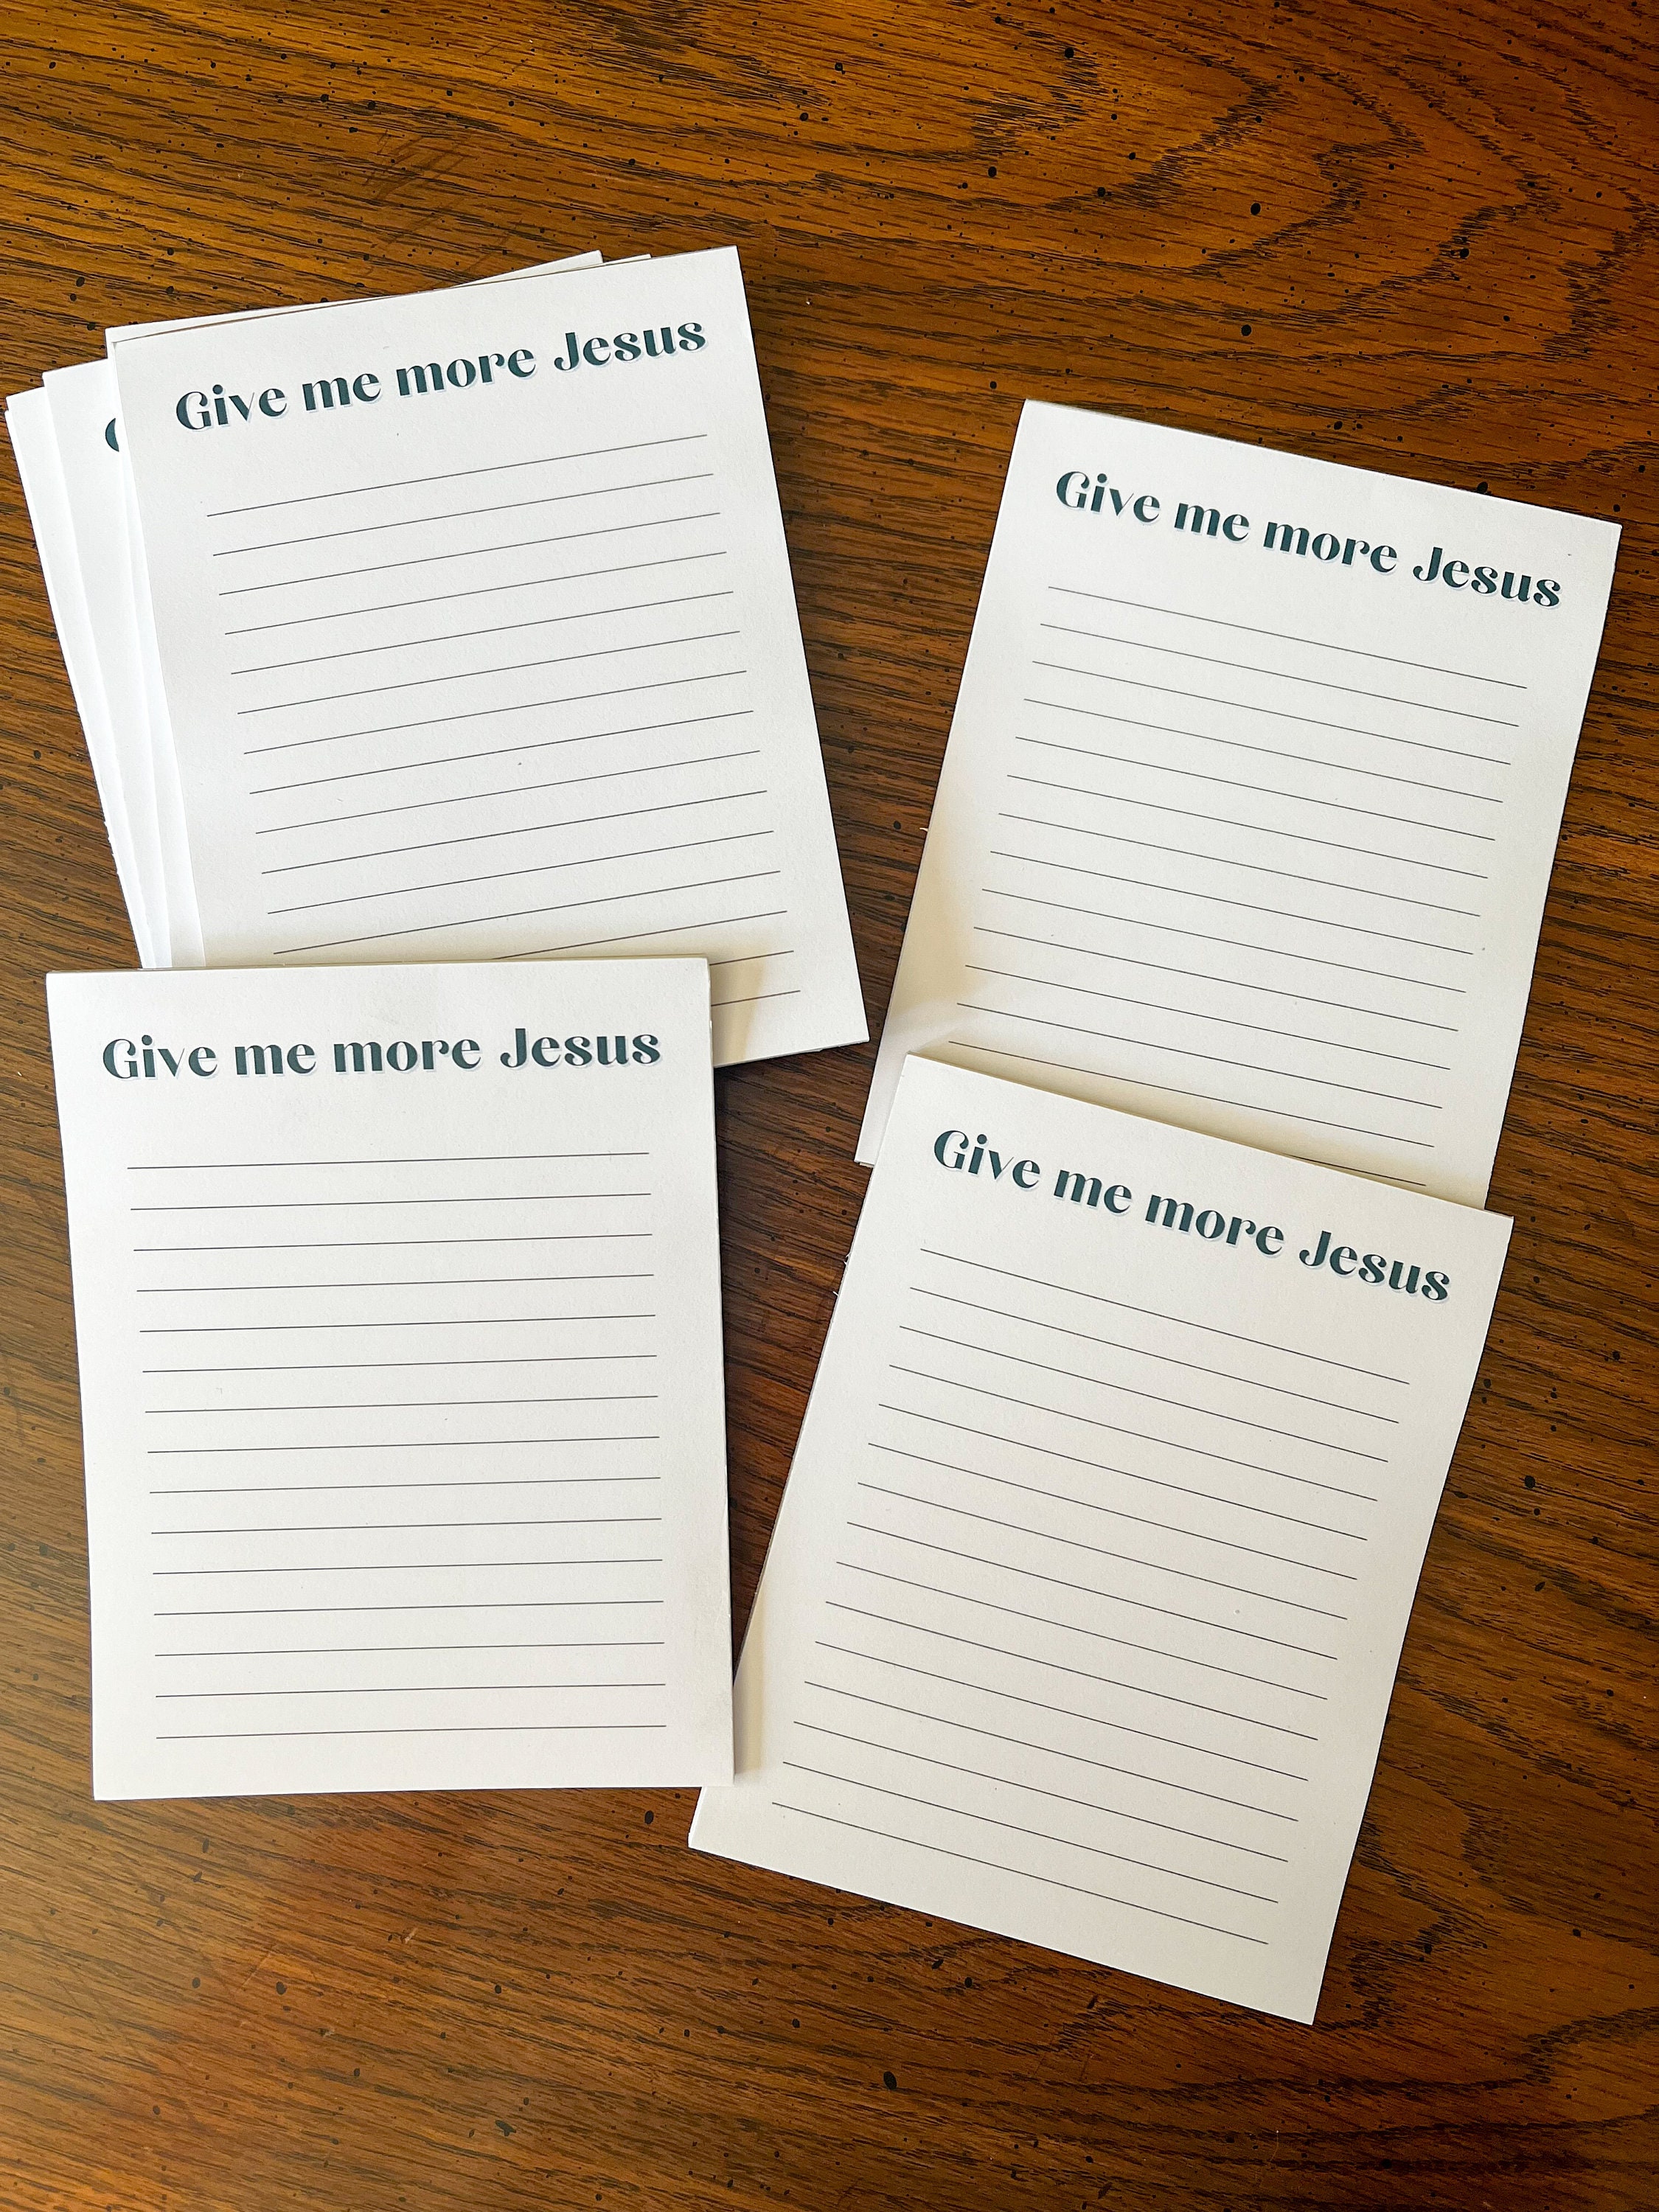 Give me more Jesus
G
Give me more Jesus
Give me more Jesus
Give me more Jesus